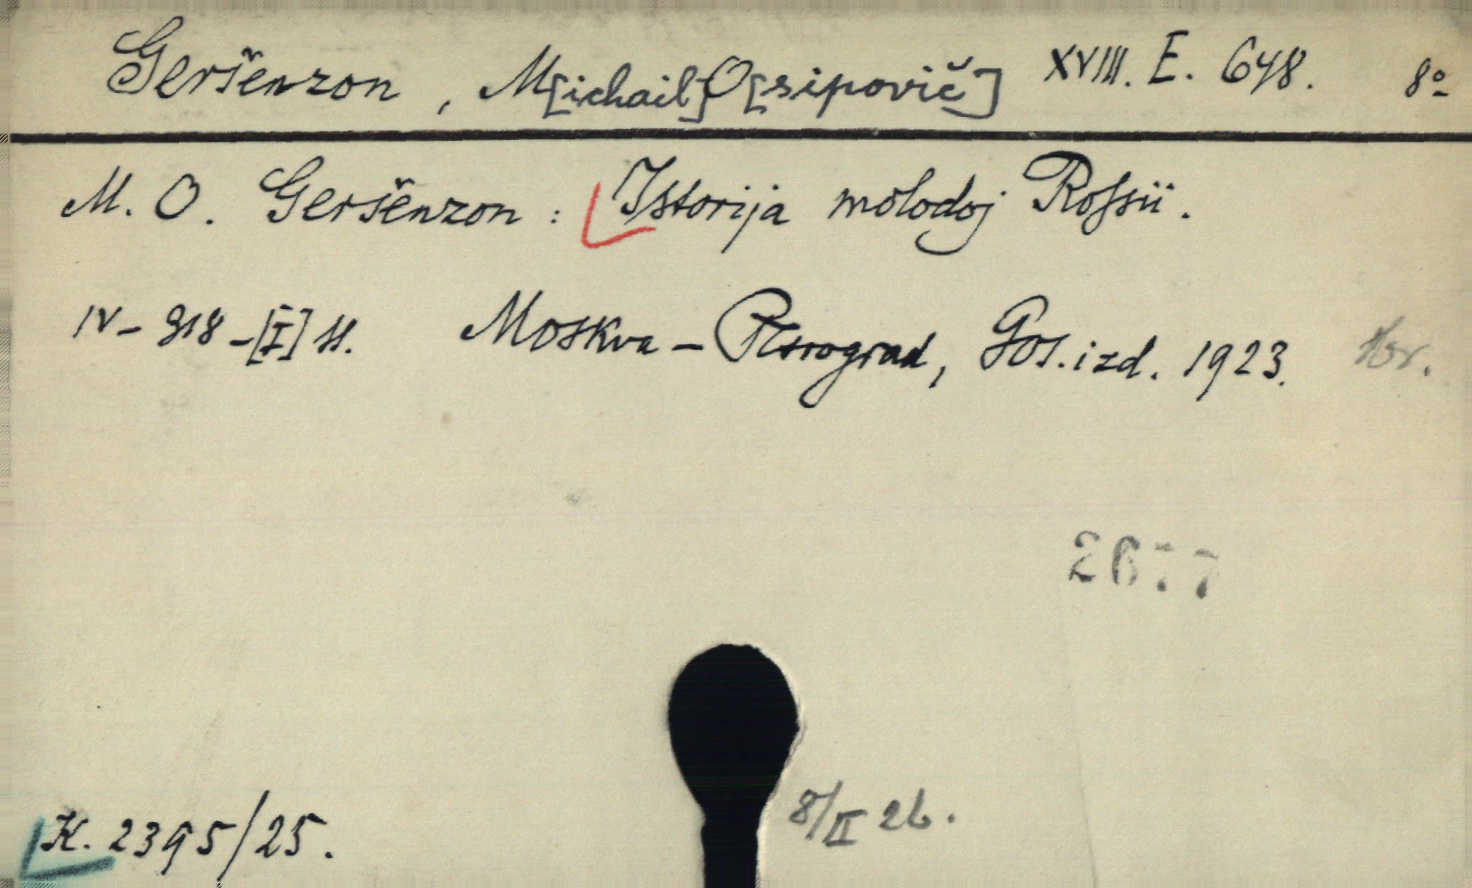 Geršenzon, M[ichail] O[sipovič] XVIII. E. 648. 8º
M. O. Geršenzon: Istorija molodoj Rossii.
IV-318-[I] st. Moskva-Petrograd, Gos. izd. 1923.
2677
K. 2395/25. 8/II 26.